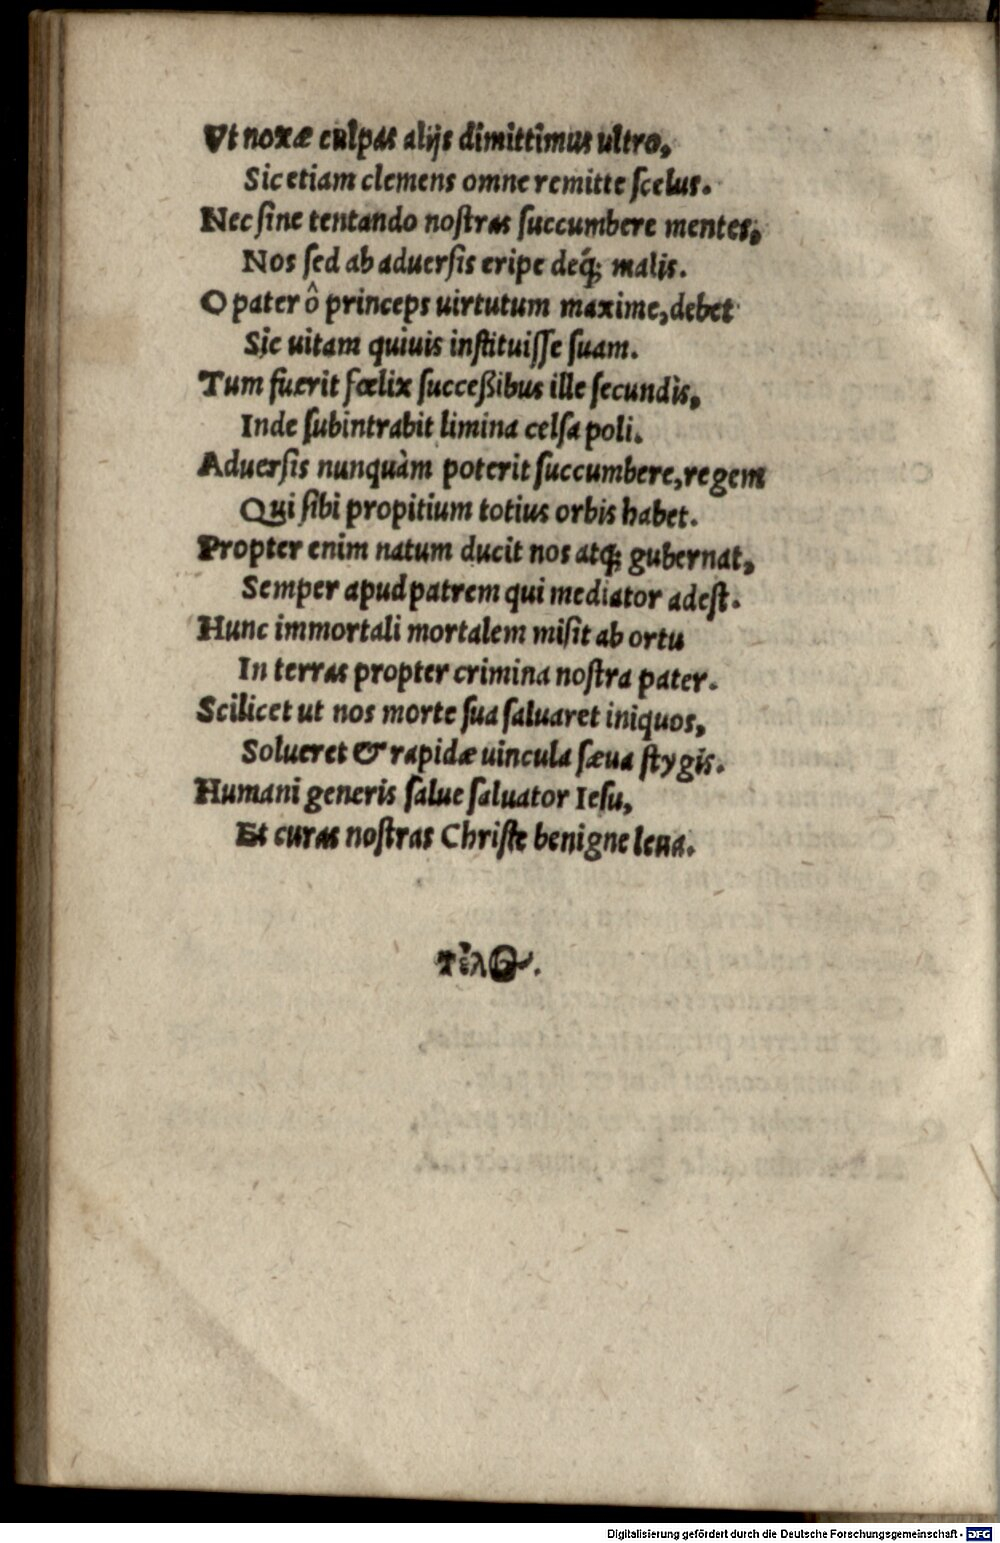 Vt noxæ culpas alijs dimittimus ultro,
Sic etiam clemens omne remitte scelus.
Nec sine tentando nostras succumbere mentes,
Nos sed ab aduersis eripe deq́; malis.
O pater ô princeps uirtutum maxime, debet
Sic uitam quiuis instituisse suam.
Tum fuerit fœlix succeßibus ille secundis,
Inde subintrabit limina celsa poli.
Aduersis nunquàm poterit succumbere, regem
Qui sibi propitium totius orbis habet.
Propter enim natum ducit nos atq; gubernat,
Semper apud patrem qui mediator adest.
Hunc immortali mortalem misit ab ortu
In terras propter crimina nostra pater.
Scilicet ut nos morte sua saluaret iniquos,
Solueret & rapidæ uincula sæua stygis.
Humani generis salue saluator Iesu,
Et curas nostras Christe benigne leua.
τέλος.
Digitalisierung gefördert durch die Deutsche Forschungsgemeinschaft - DFG